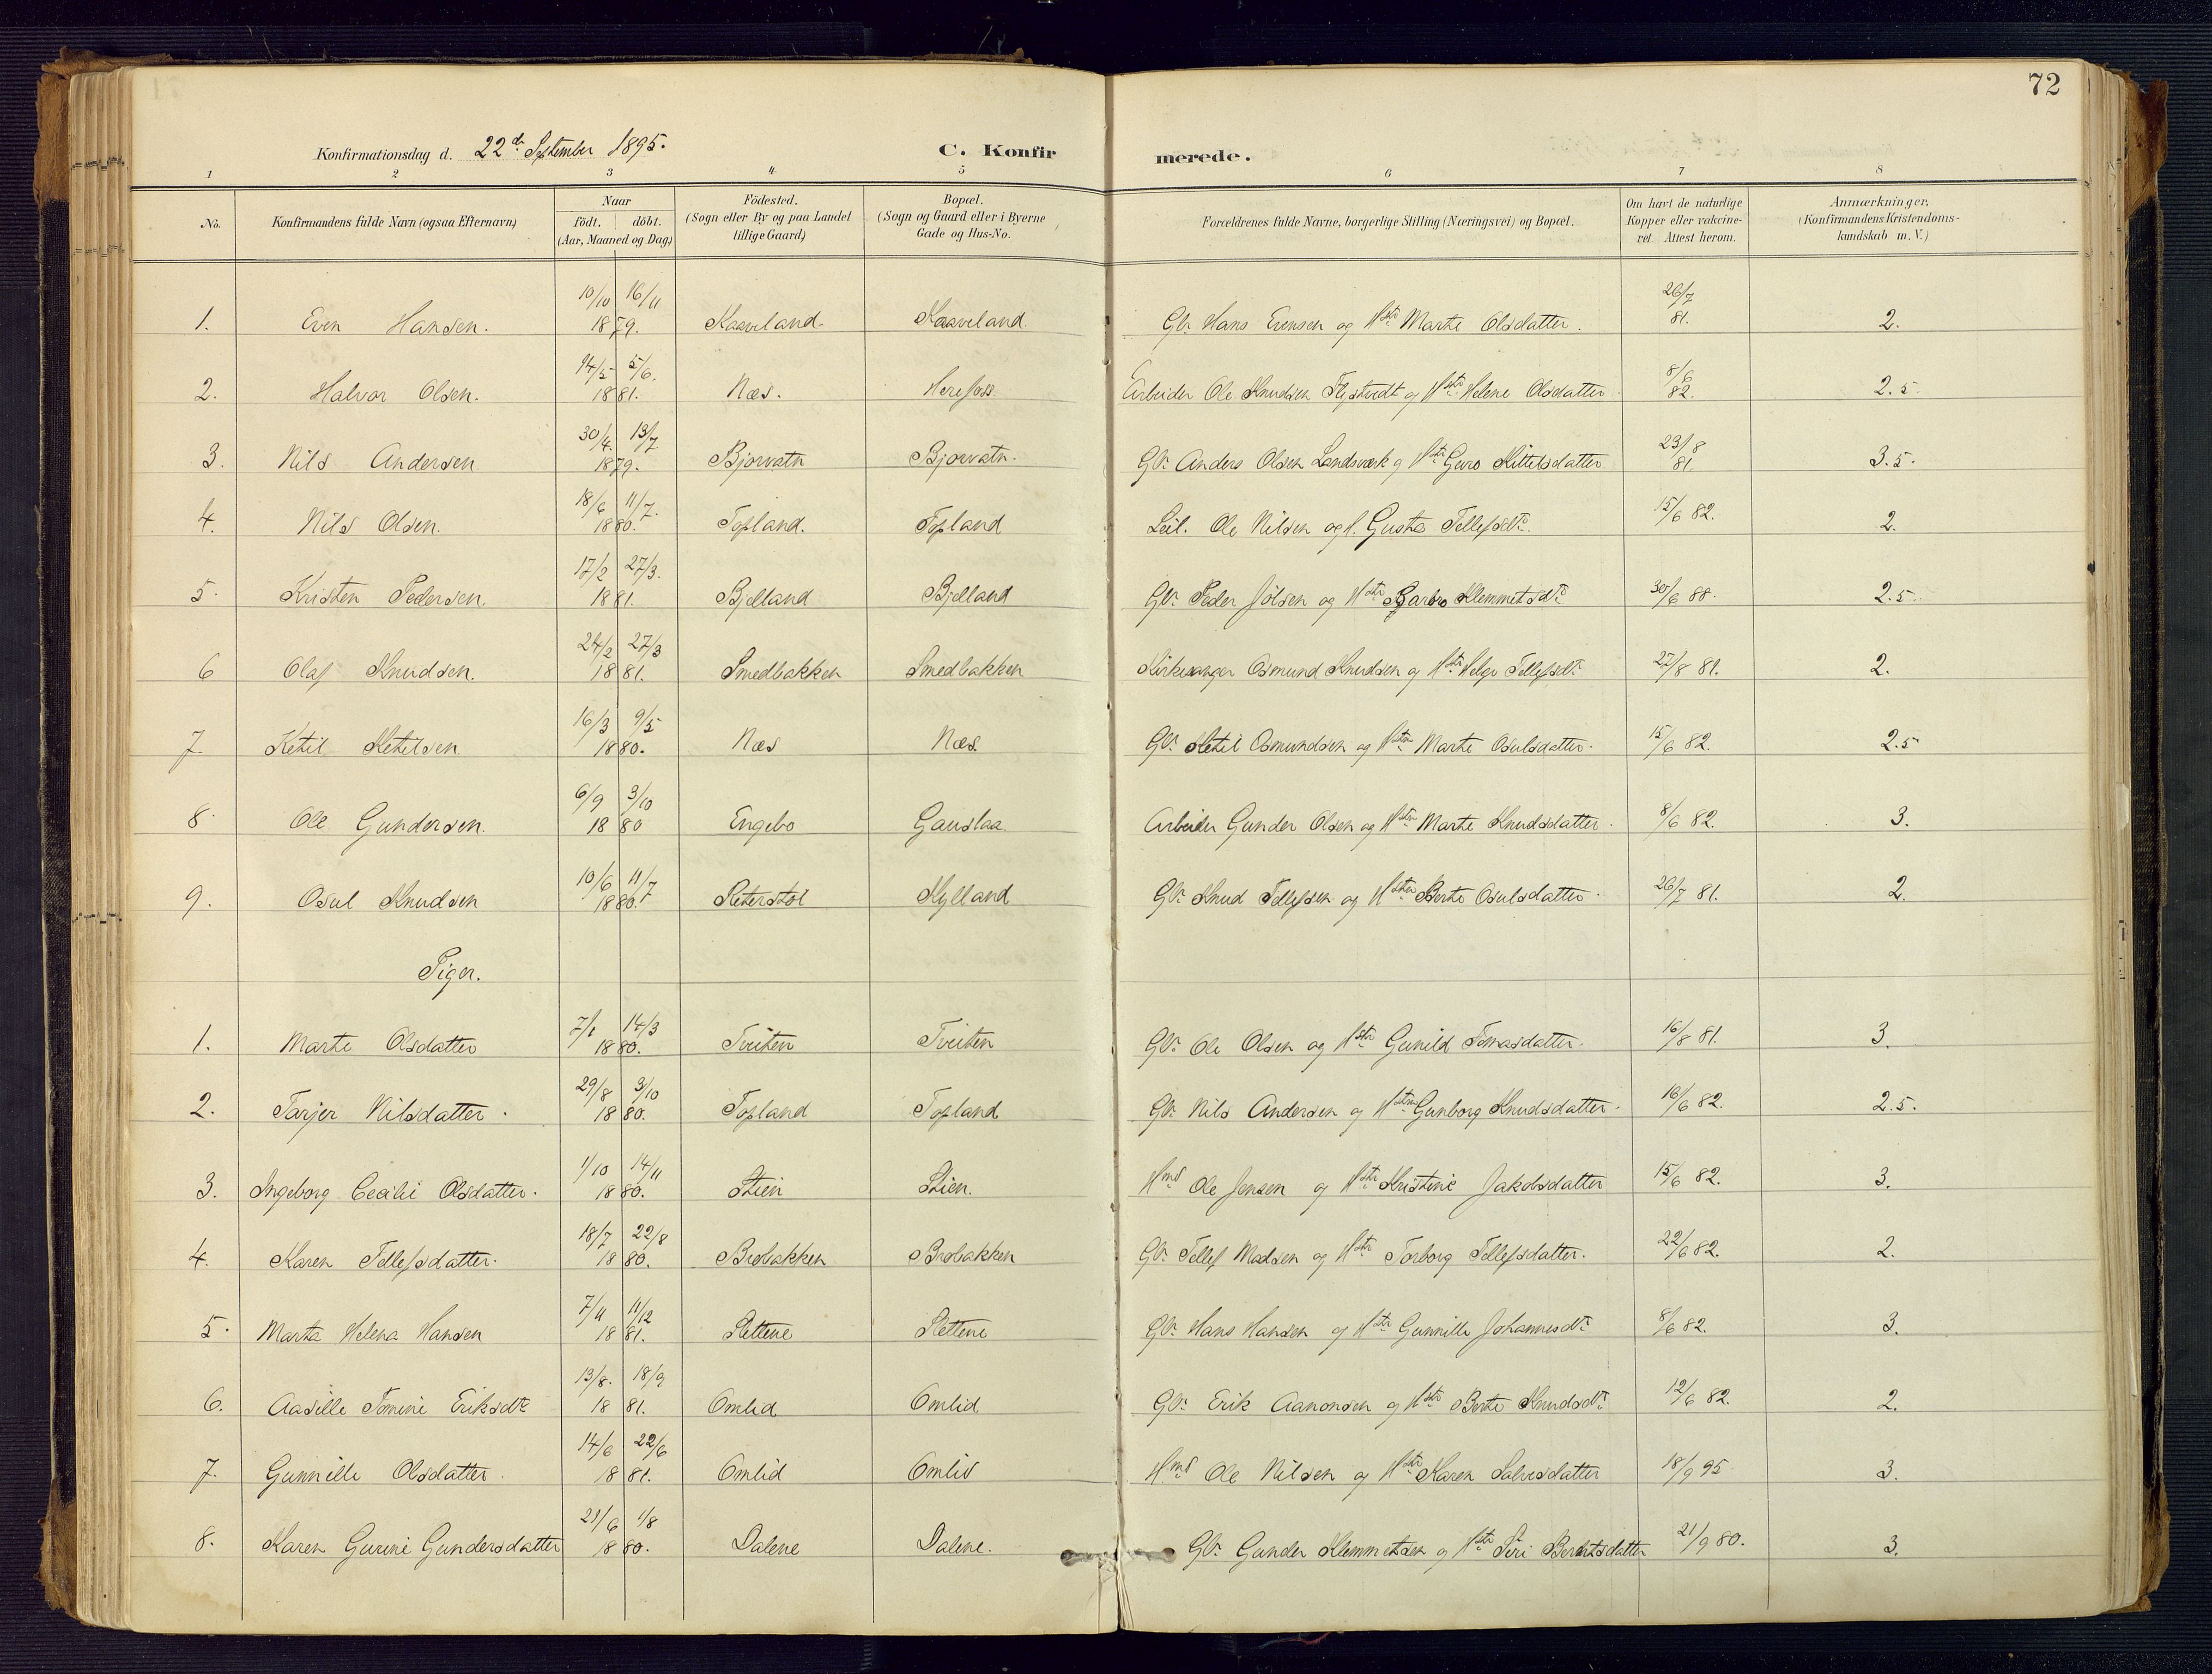 72
Konfirmationsdag d. 22de September 1895. C. Konfirmerede.
1 2 3 4 5 6 7 8
No. Konfirmandens fulde Navn (ogsaa Efternavn) Naar födt. döbt. (Aar, Maaned og Dag) Födested. (Sogn eller By og paa Landet tillige Gaard) Bopæl. (Sogn og Gaard eller i Byerne Gade og Hus-No. Forældrenes fulde Navne, borgerlige Stilling (Næringsvei) og Bopæl. Om havt de naturlige Kopper eller vakcinevet. Attest herom. Anmærkninger. (Konfirmandens Kristendomskundskab m. V.)
1. Even Hansen. 10/10 16/11 1879. Kaaveland Kaaveland. Gbr. Hans Evensen og Hstr Marte Olsdatter. 26/7 81. 2.
2. Halvor Olsen. 14/5 5/6. 1881. Næs. Herefoss. Arbeider Ole Knudsen og Hstr Helene Olsdatter 8/6 82. 2.5
3. Nils Andersen 30/4. 13/7 1879. Bjorvatn Bjorvatn. Gbr. Anders Olsen Landsværk og Hstr Guro Kittelsdatter 23/8 81. 3.5.
4. Nils Olsen. 18/6 11/7. 1880. Topland. Topland Leil. Ole Nilsen og H. Gusta Tellefsdtr. 15/6 82. 2.
5. Kristen Pedersen. 17/2 27/3. 1881. Bjelland Bjelland Gbr. Peder Jölsen og Hstr Barbro Klemmetsdtr 30/6 88. 2.5
6 Olaf Knudsen. 24/2 27/3 1881. Smedbakken Smedbakken Kirkesanger Osmund Knudsen og Hstr Helge Tellefsdtr 27/8 81. 2.
7. Ketil Ketilsen 16/3 9/5 1880. Næs Næs. Gbr. Ketil Osmundsen og Hstr Marte Osulsdatter. 15/6 82. 2.5
8. Ole Gundersen. 6/9 3/10 1880 Engebo Gauslaa. Arbeider Gunder Olsen og Hstr Marte Knudsdatter. 8/6 82. 3.
9. Osul Knudsen 10/6 11/7 1880. Hylland Gbr. Knud Tellefsen og Hstr Berte Osulsdatter. 26/7 81. 2.
Piger.
1. Marte Olsdatter 7/1 14/3 1880. Tveiten Tveiten Gbr. Ole Olsen og Hstr Gunild Tomasdatter. 16/8 81. 3.
2. Tarjer Nilsdatter. 29/8 3/10 1880. Topland Topland Gbr. Nils Andersen og Hstr Gunborg Knudsdatter. 16/6 82. 2.5.
3. Ingeborg Cecilie Olsdatter. 1/10 14/11 1880. Stien Stien. Hmd Ole Jensen og Hstr Kristine Jakobsdatter 15/6 82. 3.
4. Karen Tellefsdatter. 18/7 22/8 1880. Brobakken Brobakken Gbr. Tellef Madsen og Hstr Torborg Tellefsdatter. 22/6 82. 2.
5. Marta Helena Hansen 7/11 11/12 1881. Slettene Slettene Gbr. Hans Hansen og Hstr Gunnille Johannesdtr 8/6 82. 3.
6. Aasille Tomine Eriksdtr 13/8. 18/9 1881. Omlid Omlid Gbr. Erik Aanonsen og Hstr Berte Knudsdtr. 12/6 82. 2.
7. Gunnille Olsdatter. 14/6 22/6 1881. Omlid Omlid Hmd Ole Nilsen og Hstr Karen Salvesdatter 18/9 95 3.
8. Karen Gurine Gundersdatter 21/6 1/8 1880. Dalene Dalene. Gbr. Gunder Klemmetsen og Hstr Siri Berentsdatter 21/9 80. 3.